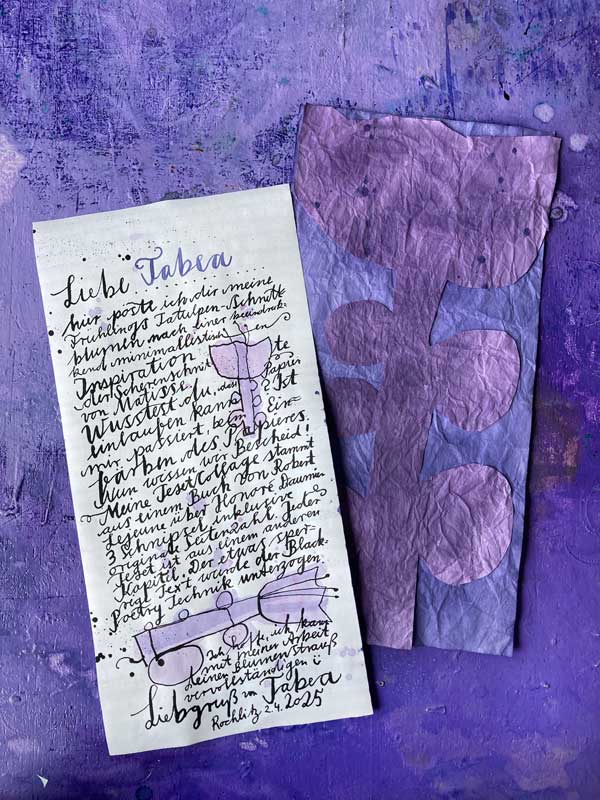 Liebe Tabea
hier poste ich dir meine
Frühlings Tatulpen-Schnitt
blumen nach einer beeindruk-
kend minimallistisch en
Inspiration te
der Scherenschnit Papier
von Matisse. ? Ist
Wusstest du, dass
einlaufen kann
mir passiert beim Ein-
färben des Papieres.
Nun wissen wir Bescheid!
Meine Textcollage stammt
aus einem Buch von Robert
Lejeune über Honoré Daumier
3 Schnipsel inklusive
originale Seitenzahl. Jeder
Text ist aus einem anderen
Kapitel. Der etwas sper-
rige Text wurde der Black-
Poetry Technik unterzogen.
Ich hoffe, ich kann
mit meiner Arbeit
deinen Blumenstrauß
vervollständigen ü
Liebgruß von Tabea
Rochlitz 2.4.2025